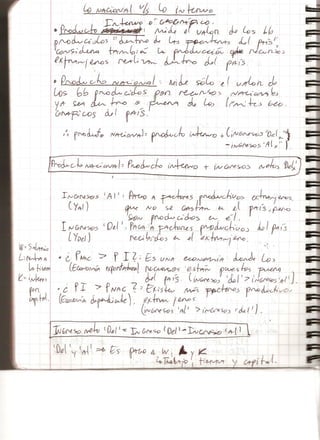 Lo NACIONAL v/s Lo INTERNO
INTERNO o GEOGRÁFICO:
• Producto mide el valor de los bb
producidos "dentro de las fronteras del país",
considera también la producción que recursos
extranjeros realizan dentro del país
• Producto nacional: mide sólo el valor de
los bb producidos por recursos nacionales
ya sea dentro o fuera de los límites geo-
gráficos del país.
∴ producto nacional: producto interno + (ingresos 'Del'
- ingresos 'Al')
Producto nacional: Producto interno + ingresos netos 'Del'
INGRESOS 'Al': PAGO A factores productivos extranjeros,
(Yal) que no se gastan en el país, pero
son producidos en él.
INGRESOS 'Del': PAGA A factores productivos del país
(Ydel) recibidos en el extranjero.
W = Salario
• ¿ PNAC > PI ?: Es una economía donde los
(Economía repatriadora) recursos están puestos fuera
del país (ingresos 'del' > ingresos 'al').
• ¿ PI > PNAC ?: Existen más factores productivos
(Economía dependiente). extranjeros
(ingresos 'al' > ingresos 'del').
capital.
Ingreso neto 'Del' = Ingreso 'Del' - Ingreso 'Al'
'Del' y 'al' ⇒ Es pago a W, L y K
Trabajo, tierra y capital.